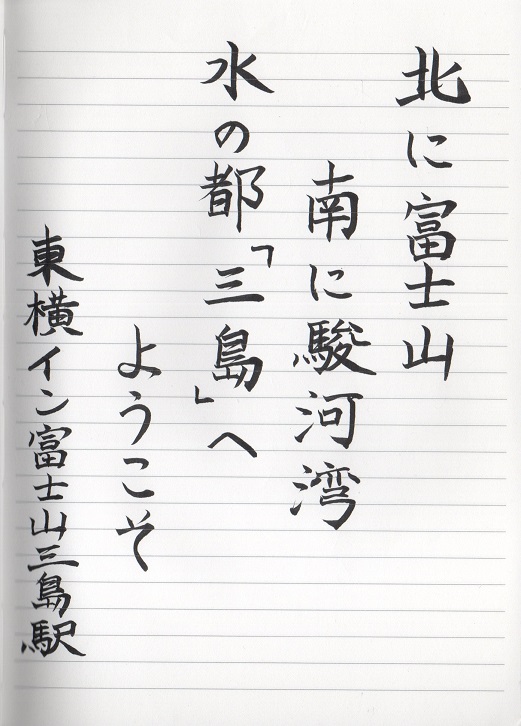 北に富士山
南に駿河湾
水の都「三島」へ
ようこそ
東横イン富士山三島駅